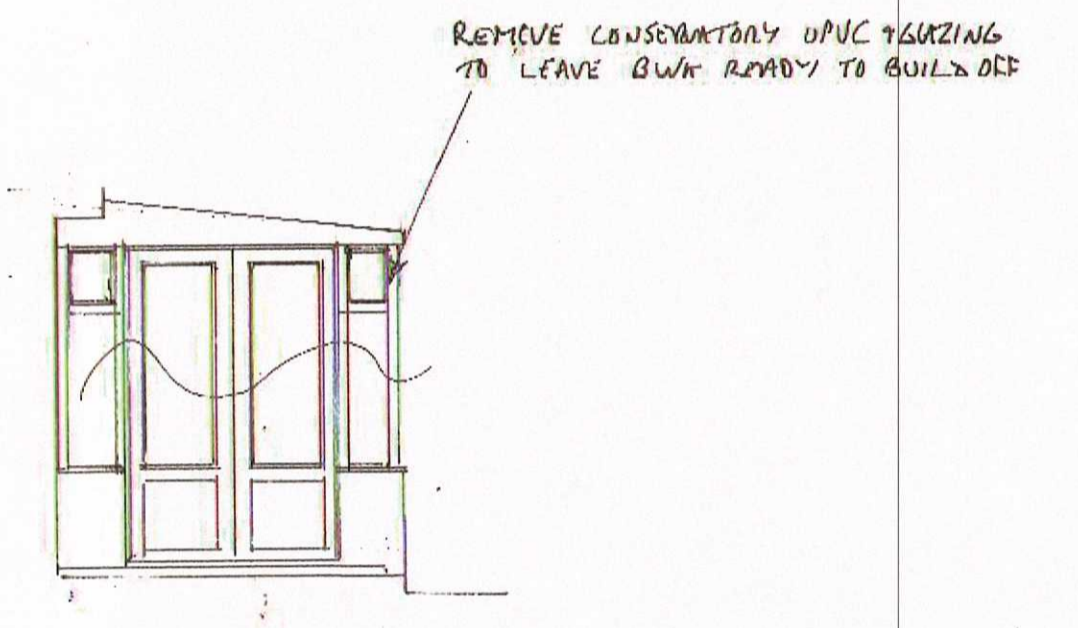 REMOVE CONSERVATORY UPVC + GLAZING
TO LEAVE BWK READY TO BUILD OFF